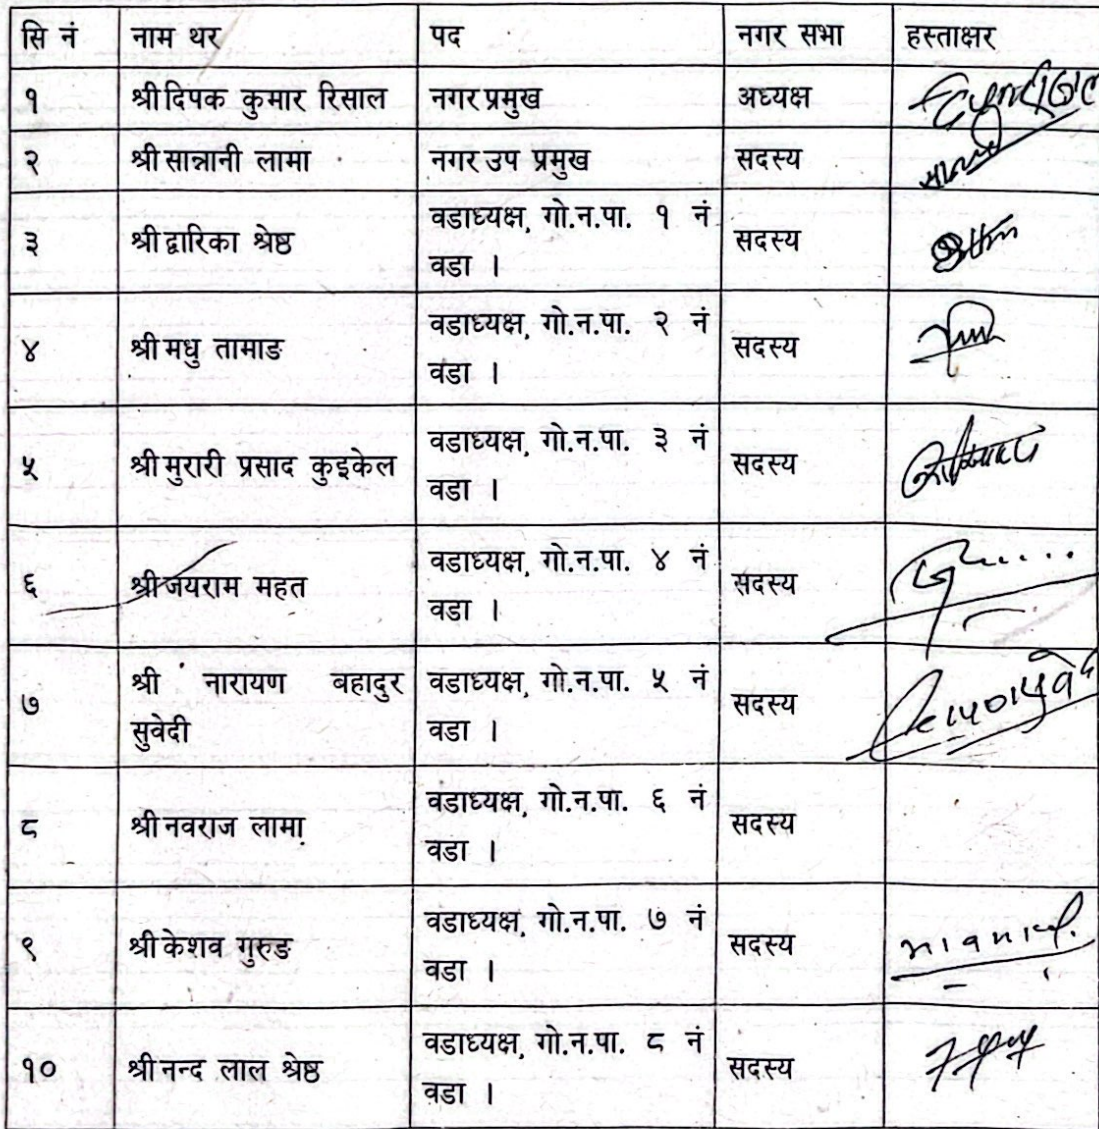 सि नं नाम थर पद नगर सभा हस्ताक्षर
१ श्री दिपक कुमार रिसाल नगर प्रमुख अध्यक्ष
२ श्री सान्नानी लामा नगर उप प्रमुख सदस्य
३ श्री द्वारिका श्रेष्ठ वडाध्यक्ष, गो.न.पा. १ नं सदस्य
वडा ।
४ श्री मधु तामाङ वडाध्यक्ष, गो.न.पा. २ नं सदस्य
वडा ।
५ श्री मुरारी प्रसाद कुइकेल वडाध्यक्ष, गो.न.पा. ३ नं सदस्य
वडा ।
६ श्री जयराम महत वडाध्यक्ष, गो.न.पा. ४ नं सदस्य
वडा ।
७ श्री नारायण बहादुर वडाध्यक्ष, गो.न.पा. ५ नं सदस्य
सुवेदी वडा ।
८ श्री नवराज लामा वडाध्यक्ष, गो.न.पा. ६ नं सदस्य
वडा ।
९ श्री केशव गुरुङ वडाध्यक्ष, गो.न.पा. ७ नं सदस्य
वडा ।
१० श्री नन्द लाल श्रेष्ठ वडाध्यक्ष, गो.न.पा. ८ नं सदस्य
वडा ।